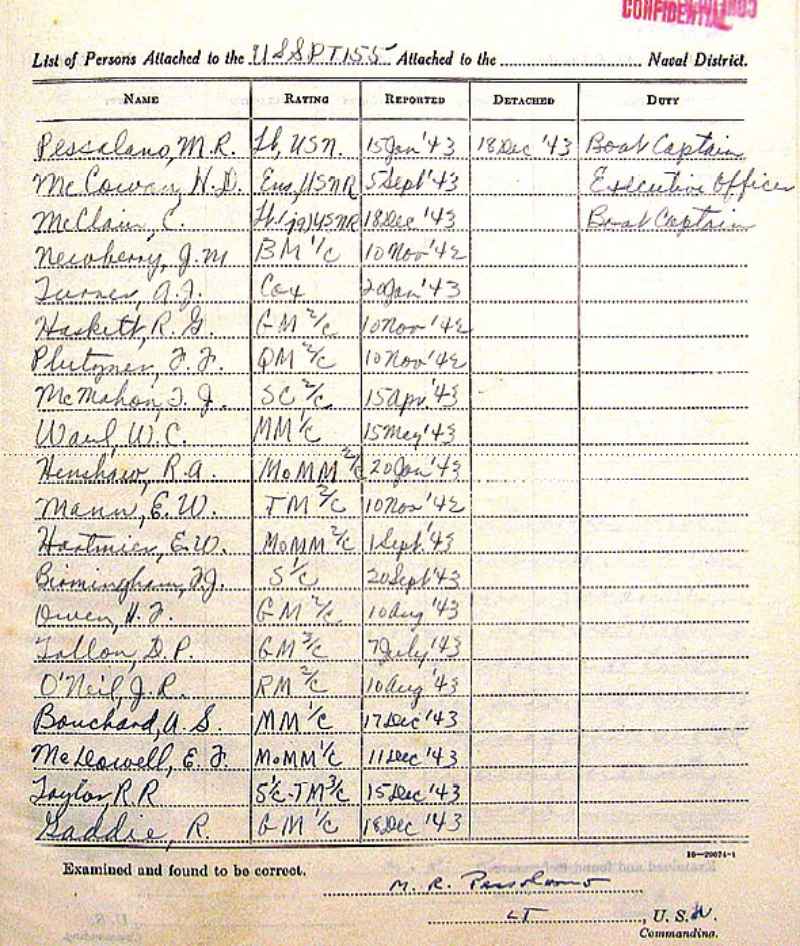 CONFIDENTIAL
List of Persons Attached to the USS PT 155 Attached to the Naval District.
NAME RATING REPORTED DETACHED DUTY
Pessolano, M.R. Lt, USN. 15 Jan '43 18 Dec '43 Boat Captain
McCowan, H.D. Ens, USNR 5 Sept '43 Executive Officer
McClain, C. Lt(jg) USNR 18 Dec '43 Boat Captain
Newberry, J.M BM 1/c 10 Nov '42
Turner, A.J. Cox 20 Jan '43
Haskett, R.G. GM 2/c 10 Nov '42
F.F. QM 2/c 10 Nov '42
McMahon, T.J. SC 2/c 15 Apr. '43
Waul, W.C. MM 1/c 15 May '43
Henshaw, R.A. MoMM 2/c 20 Jan '43
Mann, E.W. TM 2/c 10 Nov '42
E.W. MoMM 2/c 1 Sept. '43
Birmingham, S 1/c 20 Sept '43
Owen, H.F. GM 2/c. 10 Aug '43
Tallon, D.P. GM 3/c 7 July '43
O'Neil, J.R. RM 2/c 10 Aug '43
Bouchard, A.S. MM 1/c 17 Dec '43
McDowell, E.F. MoMM 1/c 11 Dec '43
Taylor, R.R S 1/c - TM 3/c 15 Dec '43
Gaddie, R. GM 1/c 18 Dec '43
16—20074-1
Examined and found to be correct.
M. R. Pessolano
LT , U. S. N.
Commanding.